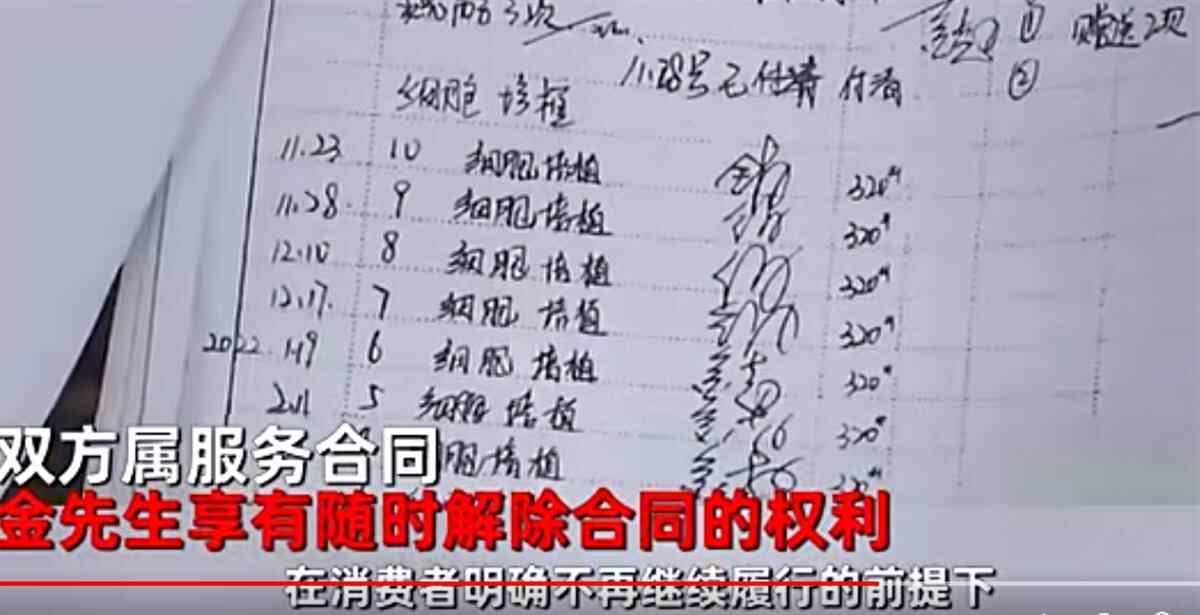 赠送2项
①
11.28号已付清 付清
②
细胞培植
11.23 10 细胞培植 320
11.28 9 细胞培植 320
12.10 8 细胞培植 320
12.17. 7 细胞培植 320
2022 1.19 6 细胞培植 320
2.11 5 细胞培植 320
胞培植 320
双方属服务合同
金先生享有随时解除合同的权利
在消费者明确不再继续履行的前提下